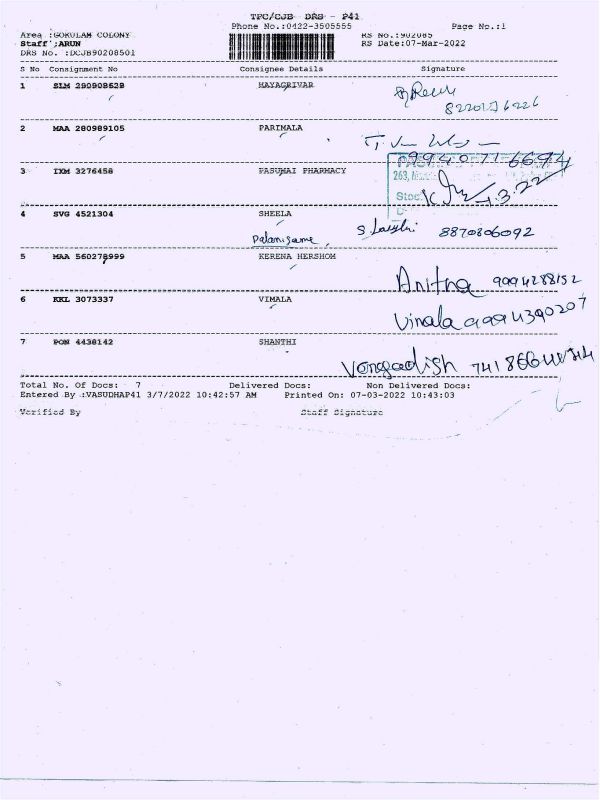 TPC/CJB DRS - P41
Phone No.:0422-3505555 Page No.:1
Area :GOKULAM COLONY RS No.:902085
Staff :ARUN RS Date:07-Mar-2022
DRS No. :DCJB90208501
S No Consignment No Consignee Details Signature
1 SLM 290908628 HAYAGRIVAR
2 MAA 280989105 PARIMALA
9940716694
3 IXM 3276458 PASUMAI PHARMACY
263,
Stoc
4 SVG 4521304 SHEELA
Palanisame, 8870806092
5 MAA 560278999 KERENA HERSHOM
Anitha 9994288152
6 KKL 3073337 VIMALA
Vimala 9994390207
7 PON 4438142 SHANTHI
Total No. Of Docs: 7 Delivered Docs: Non Delivered Docs:
Entered By :VASUDHAP41 3/7/2022 10:42:57 AM Printed On: 07-03-2022 10:43:03
Verified By Staff Signature